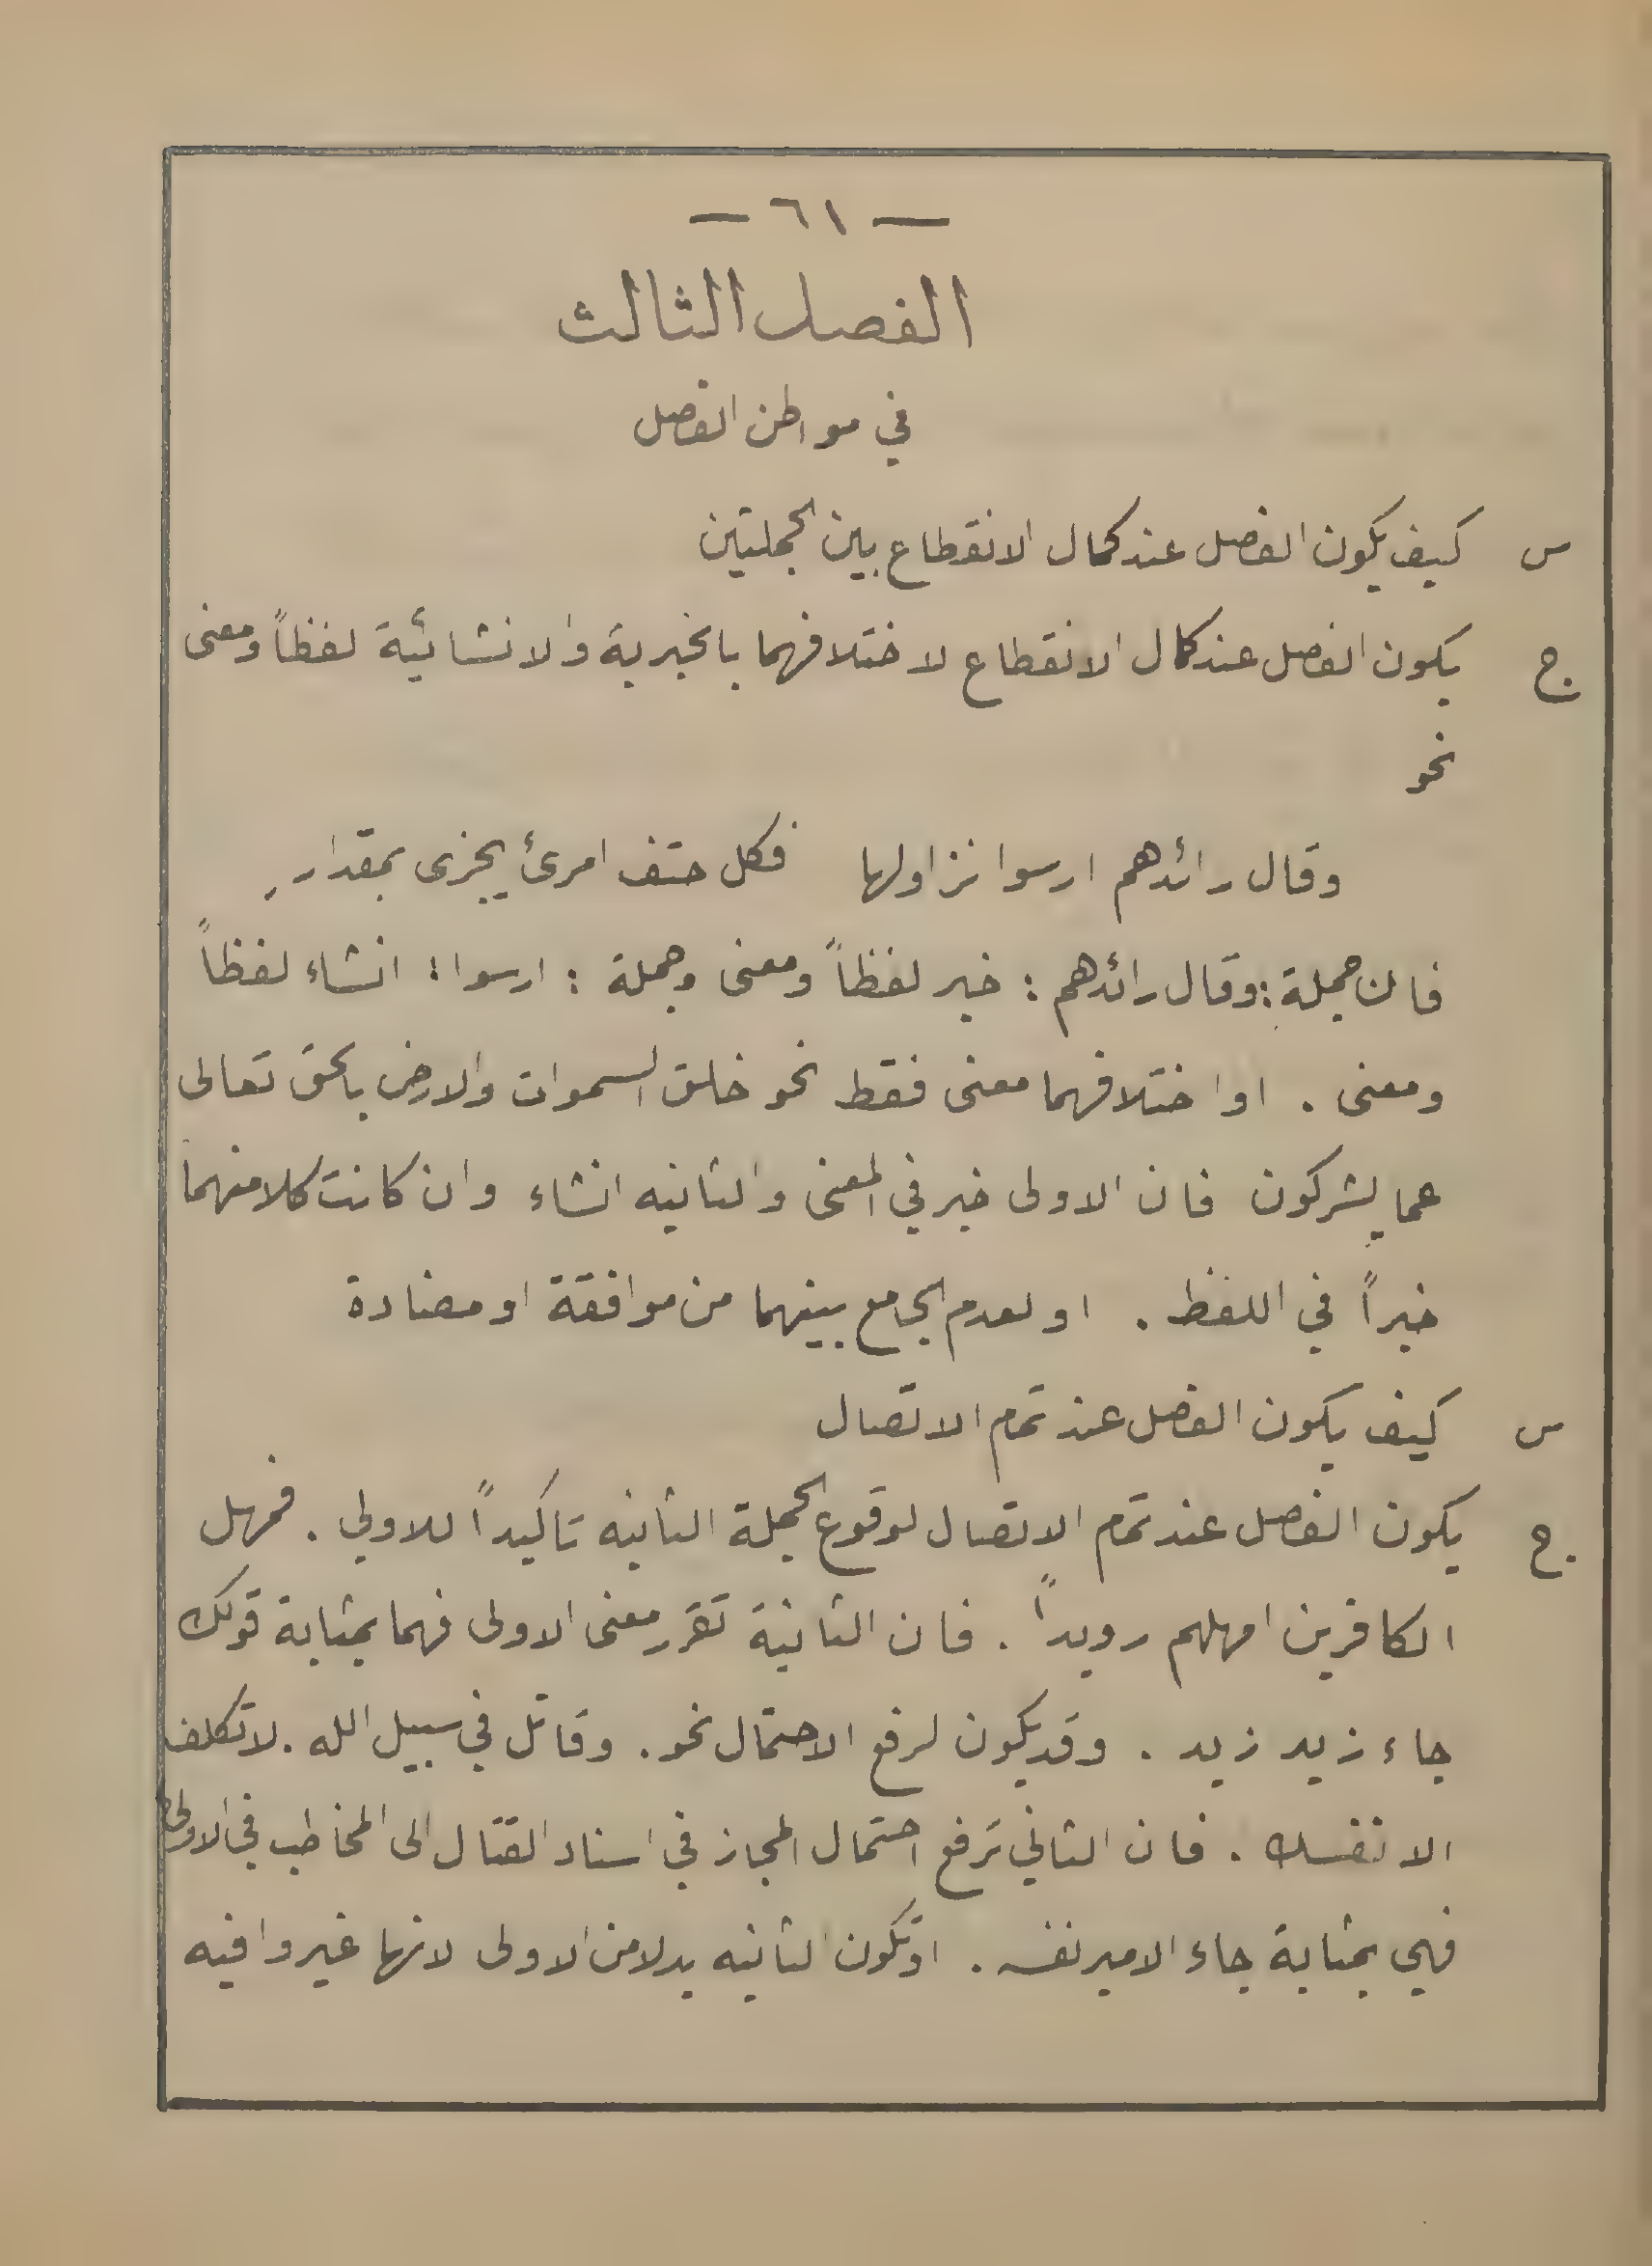 — ٦١ —
الفصل الثالث
في مواطن الفصل
س كيف يكون الفصل عند كمال الانقطاع بين الجملتين
ج يكون الفصل عند كمال الانقطاع لاختلافهما بالخبرية والانشائية لفظاً ومعنى
نحو
وقال رائدهم ارسوا نزاولها فكل حتف امرئ يجزى بمقدار
فان جملة : وقال رائدهم : خبر لفظاً ومعنى وجملة : ارسوا : انشاء لفظاً
ومعنى . او اختلافهما معنى فقط نحو خلق السموات والارض بالحق تعالى
عما يشركون فان الاولى خبر في المعنى والثانيه انشاء وان كانت كلا منهما
خبراً في اللفظ . او لعدم الجامع بينهما من موافقة او مضادة
س كيف يكون الفصل عند تمام الاتصال
ج يكون الفصل عند تمام الاتصال لوقوع الجملة الثانيه تاكيداً للاولي . فمهل
الكافرين امهلهم رويداً . فان الثانية تقرر معنى الاولى فهما بمثابة قولك
جاء زيد زيد . وقد يكون لرفع الاحتمال نحو . وقاتل في سبيل الله . لا تكلف
الا نفسك . فان الثاني ترفع احتمال المجاز في اسناد القتال الى المخاطب في الاولى
فهي بمثابة جاء الامير نفسه . او تكون الثانيه بدلا من الاولى لانها غير وافيه